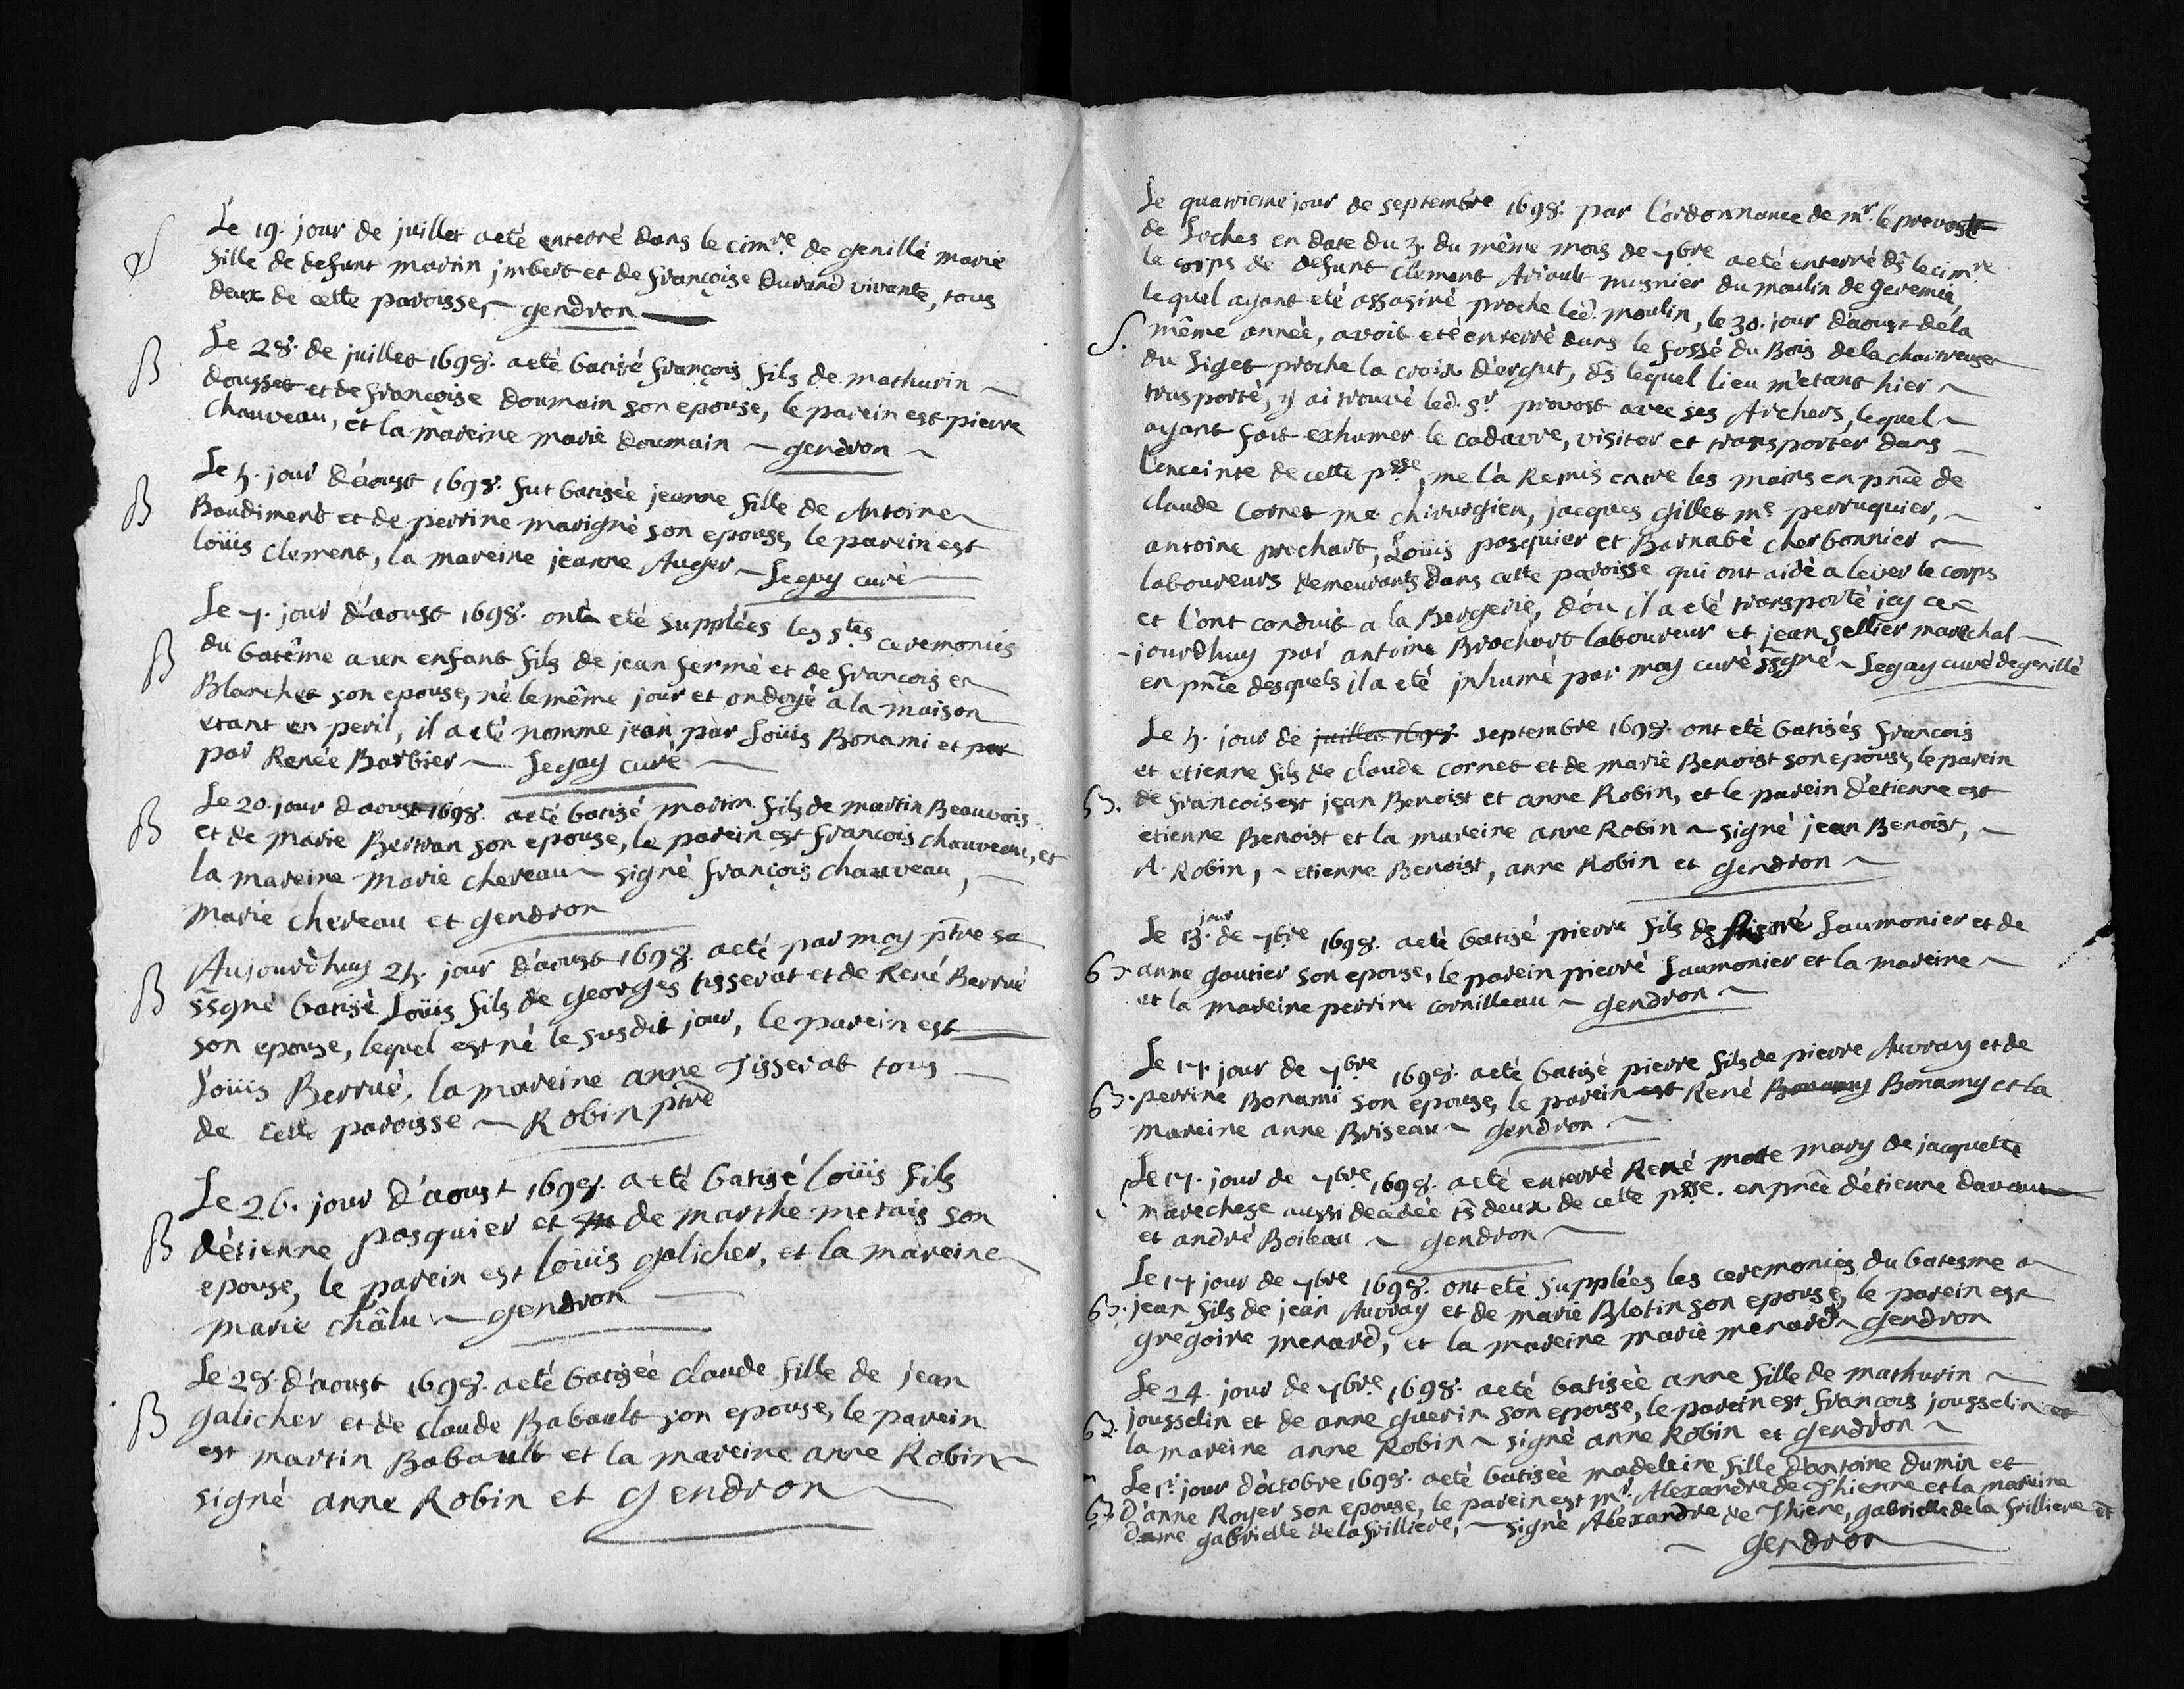 S Le 19. jour de juillet a eté enterré dans le cim.re de genillé marie
fille de defunt martin jmbert et de françoise durand vivante, tous
deux de cette paroisse, gendron
B Le 28. de juillet 1698. a eté batisé françois fils de mathurin
dousset et de françoise doumain son epouse, le parein est pierre
chauveau, et la mareine marie doumain gendron
B Le 5. jour d'aoust 1698. fut batisée jeanne fille de Antoine
Baudiment et de perrine marigné son epouse, le parein est
loüis clement, la mareine jeanne Auger, Legay curé
B Le 7. jour d'aoust 1698. ont eté supplées les s.tes ceremonies
du batême a un enfant fils de jean fermé et de françoise
Blanchet son epouse, né le même jour et ondoyé a la maison
etant en peril, il a eté nomme jean par Loüis Bonami et par
par Renée Barbier Legay curé
B Le 20. jour d'aoust 1698. a eté batisé martin fils de martin Beauvais
et de marie Bertran son epouse, le parein est françois chauveau, et
la mareine marie chereau signé françois chauveau,
marie chereau et gendron
B Aujourdhuy 25. jour d'aoust 1698. a eté par moy ptre
ssgné batisé Loüis fils de georges tisserat et de René Berrué
son epouse, lequel est né le susdit jour, le parein est
Loüis Berrué, la mareine anne Tisserat tous
de cette paroisse Robin ptre
B Le 26. jour d'aoust 1698. a eté batisé loüis fils
d'étienne pasquier et de marthe metais son
epouse, le parein est loüis galicher, et la mareine
marie châlu gendron
B Le 28. d'aoust 1698. a eté batisée claude fille de jean
galicher et de claude Babault son epouse, le parein
est martin Babault et la mareine anne Robin
signé anne Robin et gendron
Le quatrieme jour de septembre 1698. par l'ordonnance de mr. le prevost
de Loches en date du 3. du même mois de 7bre a eté enterré ds le cim.re
le corps de defunt clement Ariault musnier du moulin de geremie,
lequel ayant eté assasiné proche led. moulin, le 30. jour d'aoust de la
S. même année, avoit eté enterré dans le fossé du Bois de la chartreuse
du Liget proche la croix d'argut, ds lequel lieu m'etant hier
trasporté, y ai trouvé led. sr. provost avec ses Archers, lequel
ayant fait exhumer le cadavre, visiter et transporter dans
l'enceinte de cette psse, me l'a Remis entre les mains en pnce de
claude Cornet me chirurgien, jacques gillet me perruquier,
antoine prochart, Loüis pasquier et Barnabé cherbonnier
laboureurs demeurants dans cette paroisse qui ont aidé a lever le corps
et l'ont conduit a la Bergerie, d'ou il a eté transporté icy ce
jourdhuy par antoine Brochart laboureur et jean sellier marechal
en pnce desquels il a eté jnhumé par moy curé ssgné Legay curé de genillé
Le 5. jour de juillet 1698. septembre 1698. ont eté batisés françois
et etienne fils de claude cornet et de marie Benoist son epouse, le parein
B. de francois est jean Benoist et anne Robin, et le parein d'étienne est
etienne Benoist et la mareine anne Robin signé jean Benoist,
A. Robin, etienne Benoist, anne Robin et gendron
Le 13. jour de 7bre 1698. a eté batisé pierre fils de pierre Laumonier et de
B. anne gautier son epouse, le parein pierre Laumonier et la mareine
et la mareine perrine cornilleau gendron
Le 17. jour de 7bre 1698. a eté batisé pierre fils de pierre Auvray et de
B. perrine Bonami son epouse, le parein est René Bonamy Bonamy et la
mareine anne Briseau gendron
S Le 17. jour de 7bre 1698. a eté enterré René motte mary de jacquette
marechese aussi decedée ts deux de cette psse. en pnce d'étienne davau
et andré Boileau gendron
Le 17 jour de 7bre 1698. ont eté supplées les ceremonies du batesme a
B. jean fils de jean Auvray et de marie Blotin son epouse, le parein est
gregoire menard, et la mareine marie menard gendron
Le 24. jour de 7bre 1698. a eté batisée anne fille de mathurin
B. jousselin et de anne guerin son epouse, le parein est francois jousselin et
la mareine anne Robin signé anne Robin et gendron
Le 1r. jour d'octobre 1698. a eté batisée madeleine fille d'antoine dumin et
B. d'anne Royer son epouse, le parein est mr. Alexandre de Thienne et la mareine
dame gabrielle de la frilliere, signé Alexandre de Thiene, gabrielle de la frilliere et
gendron